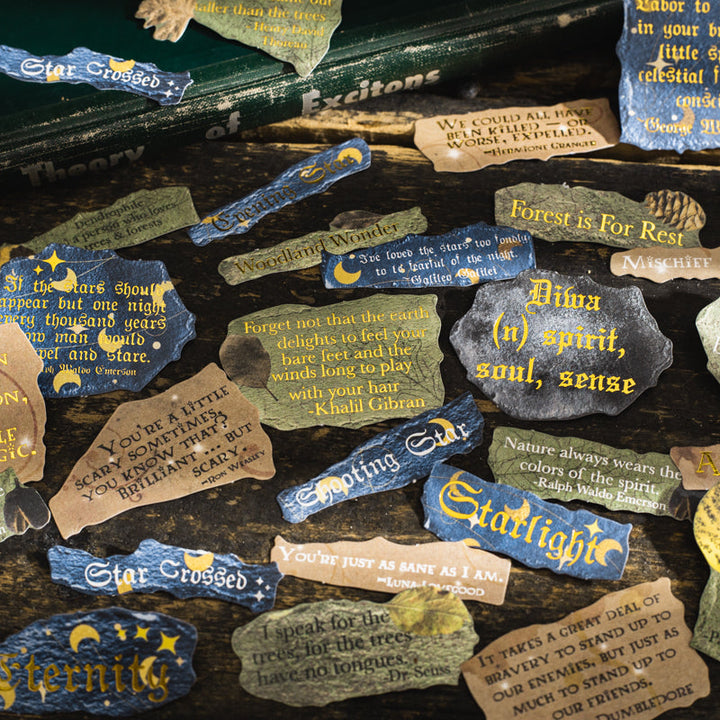 taller than the trees
Star Crossed
Theory of Excitons
Labor to
in your br
little s
celestial f
consc
-George W
We could all have
been killed — or
worse, expelled.
—Hermione Granger
Evening Star
Dendrophile
a person who loves
trees & forests
Woodland Wonder
I've loved the stars too fondly
to be fearful of the night.
-Galileo Galilei
Forest is For Rest
Mischief
If the stars should
appear but one night
every thousand years
how man would
marvel and stare.
Ralph Waldo Emerson
Forget not that the earth
delights to feel your
bare feet and the
winds long to play
with your hair
-Khalil Gibran
Diwa
(n) spirit,
soul, sense
You're a little
scary sometimes,
you know that?
Brilliant... but
scary.
—Ron Weasley
Shooting Star
Nature always wears the
colors of the spirit.
-Ralph Waldo Emerson
Starlight
Star Crossed
You're just as sane as I am.
—Luna Lovegood
Eternity
I speak for the
trees, for the trees
have no tongues.
-Dr. Seuss
It takes a great deal of
bravery to stand up to
our enemies, but just as
much to stand up to
our friends.
Dumbledore